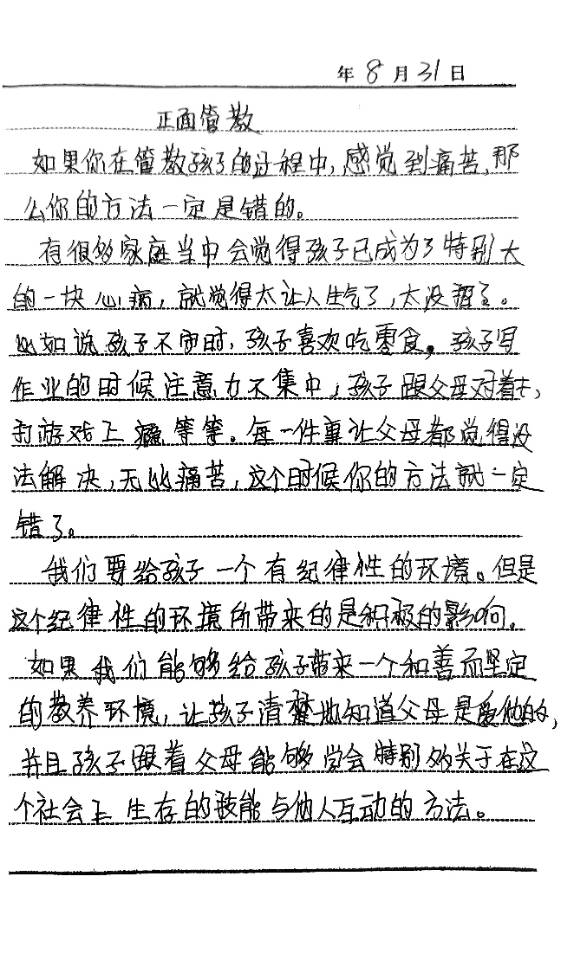 年 8 月 31 日
正面管教
如果你在管教孩子的过程中,感觉到痛苦,那
么你的方法一定是错的。
有很多家庭当中会觉得孩子已成为了特别大
的一块心病,就觉得太让人生气了,太没招了。
比如说孩子不守时,孩子喜欢吃零食,孩子写
作业的时候注意力不集中,孩子跟父母对着干,
打游戏上瘾等等。每一件事让父母都觉得没
法解决,无比痛苦,这个时候你的方法就一定
错了。
我们要给孩子一个有纪律性的环境。但是
这个纪律性的环境所带来的是积极的影响。
如果我们能够给孩子带来一个和善而坚定
的教养环境,让孩子清楚地知道父母是爱他的,
并且孩子跟着父母能够学会特别多关于在这
个社会上生存的技能与他人互动的方法。